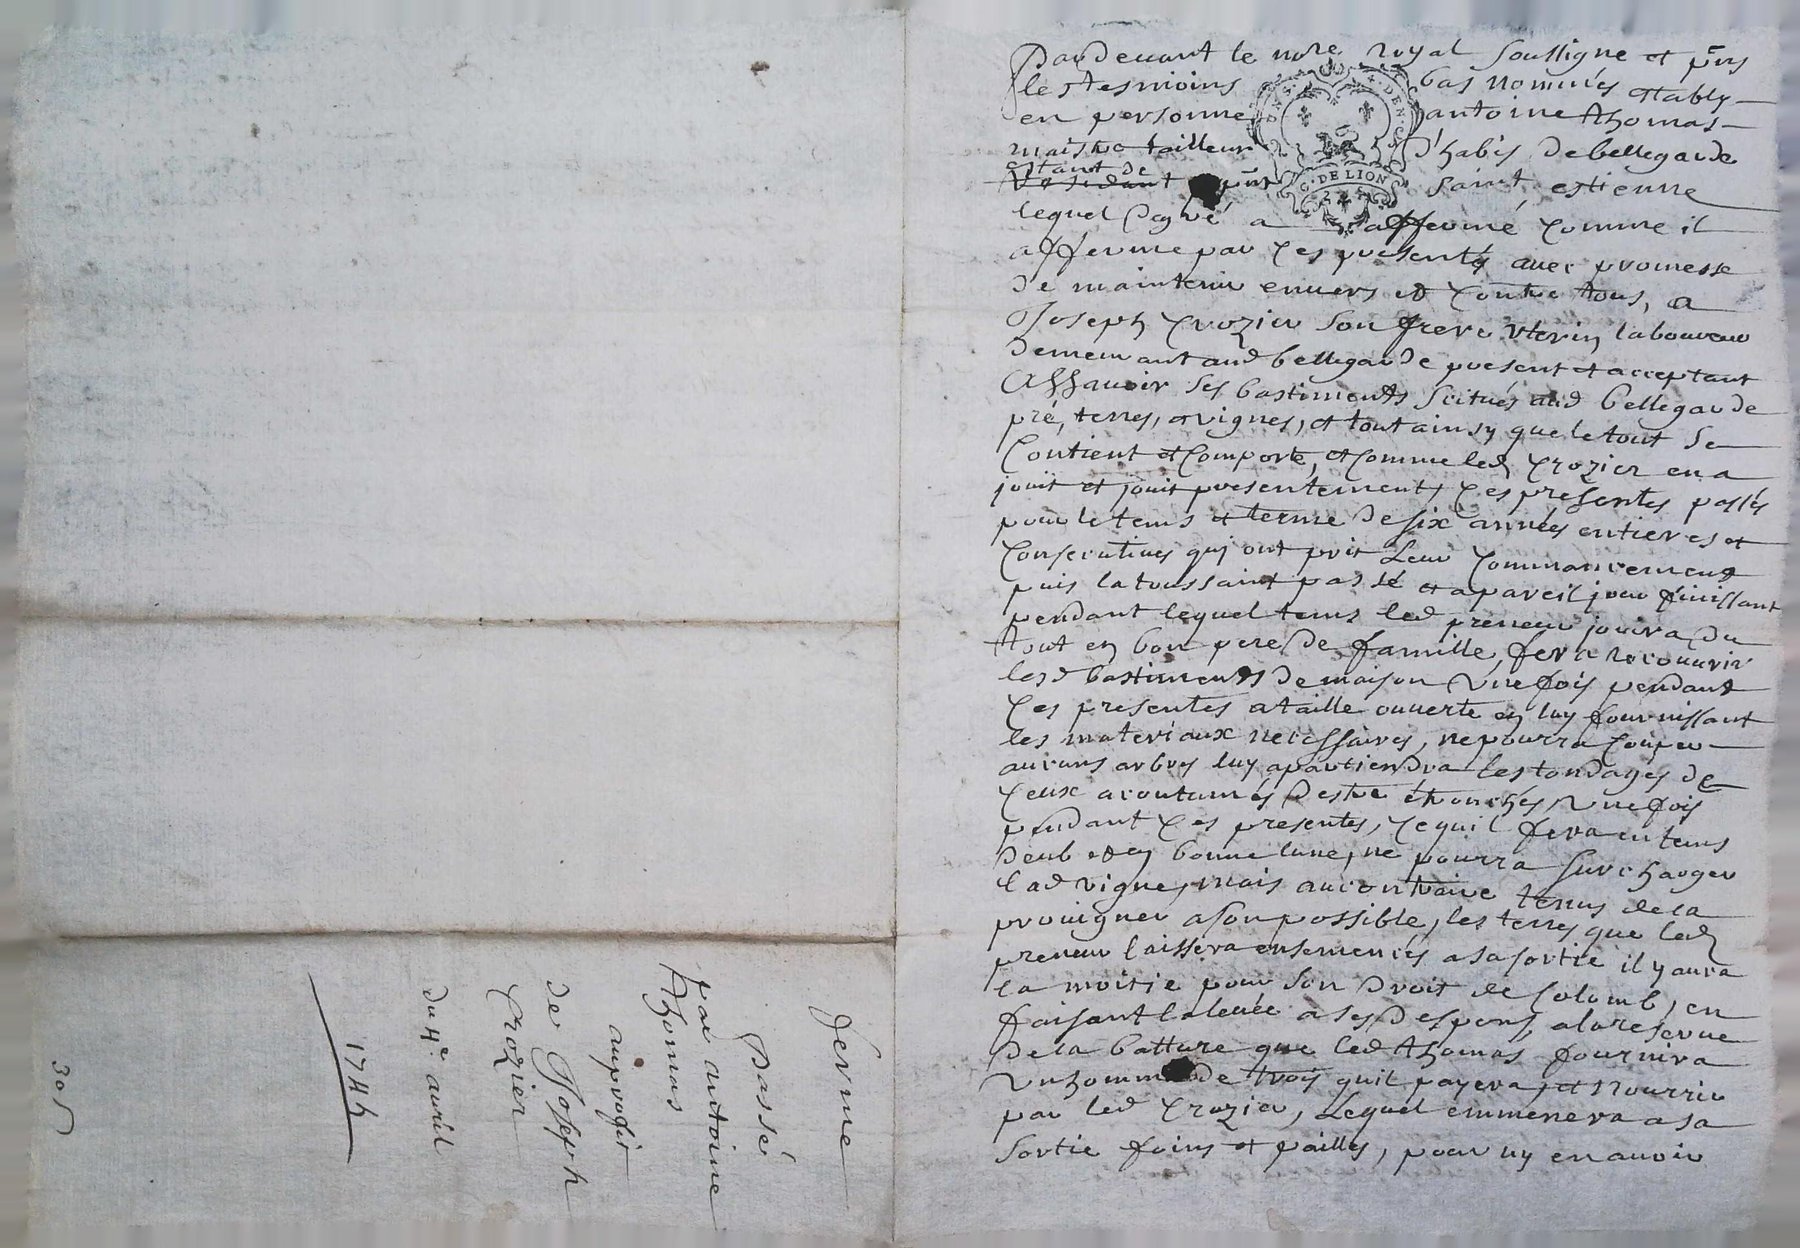 Pardevant le nore royal soussigne et pñs
les tesmoins bas nommés estably
en personne antoine thomas
maistre tailleur d'habis de bellegarde
estant de
residant pñt saint estienne
lequel de gré a affermé comme il
afferme par ces presentes avec promesse
de maintenir envers et contre tous, a
Joseph Crozier son frere uterin laboureur
demeurant aud bellegarde present et acceptant
Assavoir ses bastiments scitués aud bellegarde
pré, terres, et vignes, et tout ainsy que le tout se
contient et comporte, et comme led Crozier en a
jouit et jouit presentement, ces presentes passés
pour le tems et terme de six années entieres et
consecutives quj ont pris leur commancement
puis la toussaint passé et a pareil jour finissant
pendant lequel tems led preneur jouira du
tout en bon pere de famille, fera recouvrir
lesd bastiments de maison une fois pendant
ces presentes a taille ouverte en luy fournissant
les materiaux necessaires, ne pourra couper
aucuns arbres luy apartiendra les tondages de
ceux acoutumés d'estre étronchés une fois
pendant ces presentes, ce quil fera en tems
deub et en bonne lune, ne pourra surcharger
lad vigne, mais au contraire tenus de la
provigner a son possible, les terres que led
preneur laissera ensemencés a sa sortie il y aura
la moitie pour son droit de colomb, en
faisant la levée a ses despens, a la reserve
de la batture que led thomas fournira
un homme de trois quil payera, et nourrir
par led Crozier, lequel emmenera a sa
sortie foins et pailles, pour ny en avoir
G. DE LION
ferme
passé
par antoine
thomas
au profit
de Joseph
Crozier
du 4e. avril
1744
305